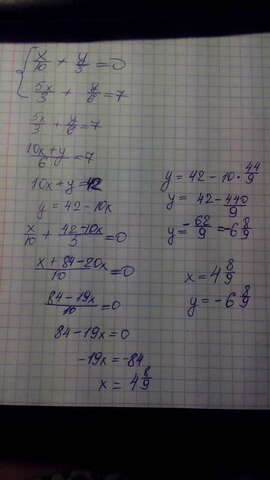 x/10 + y/5 = 0
5x/3 + y/6 = 7
5x/3 + y/6 = 7
10x+y/6 = 7
10x+y=42
y = 42-10x
x/10 + 42-10x/5 = 0
x+84-20x/10 = 0
84-19x/10 = 0
84-19x=0
-19x=-84
x = 4 8/9
y = 42 - 10 · 44/9
y = 42 - 440/9
y = -62/9 = -6 8/9
x = 4 8/9
y = -6 8/9